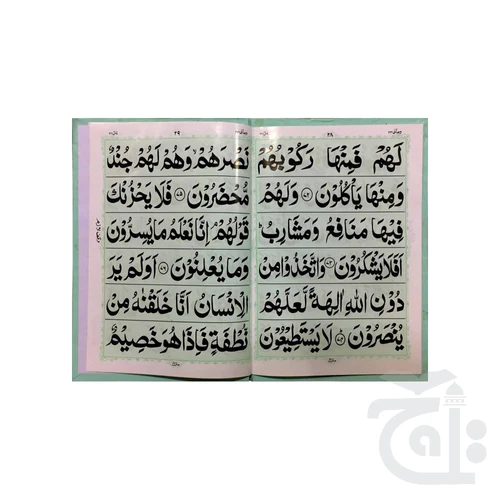 ٢٨
لَهُمْ فَمِنْهَا رَكُوْبُهُمْ
وَمِنْهَا يَاْكُلُوْنَ ﴿۷۲﴾ وَلَهُمْ
فِيْهَا مَنَافِعُ وَمَشَارِبُ ؕ
اَفَلَا يَشْكُرُوْنَ ﴿۷۳﴾ وَاتَّخَذُوْا مِنْ
دُوْنِ اللّٰهِ اٰلِهَةً لَّعَلَّهُمْ
يُنْصَرُوْنَ ﴿۷۴﴾ لَا يَسْتَطِيْعُوْنَ
٢٩
نَصْرَهُمْ وَهُمْ لَهُمْ جُنْدٌ
مُّحْضَرُوْنَ ﴿۷۵﴾ فَلَا يَحْزُنْكَ
قَوْلُهُمْ اِنَّا نَعْلَمُ مَا يُسِرُّوْنَ
وَمَا يُعْلِنُوْنَ ﴿۷۶﴾ اَوَلَمْ يَرَ
الْاِنْسَانُ اَنَّا خَلَقْنٰهُ مِنْ
نُّطْفَةٍ فَاِذَا هُوَ خَصِيْمٌ